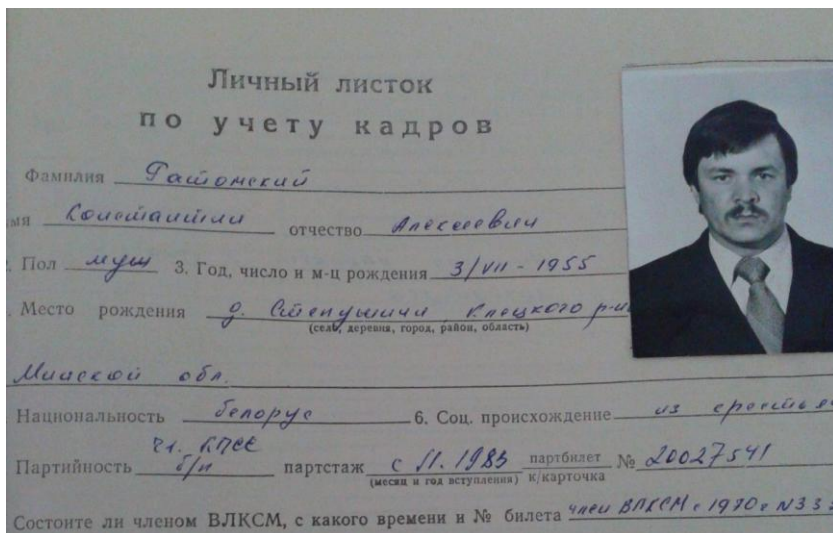 Личный листок
по учету кадров
Фамилия Гатомский
мя Константин отчество Алексеевич
. Пол муж 3. Год, число и м-ц рождения 3/VII - 1955
. Место рождения д. Степушичи Клецкого р-н
(село, деревня, город, район, область)
Минской обл.
Национальность белорус 6. Соц. происхождение из крестья
чл. КПСС
Партийность б/п партстаж с 11. 1983 партбилет № 20027541
(месяц и год вступления) к/карточка
Состоите ли членом ВЛКСМ, с какого времени и № билета член ВЛКСМ с 1970 г N33